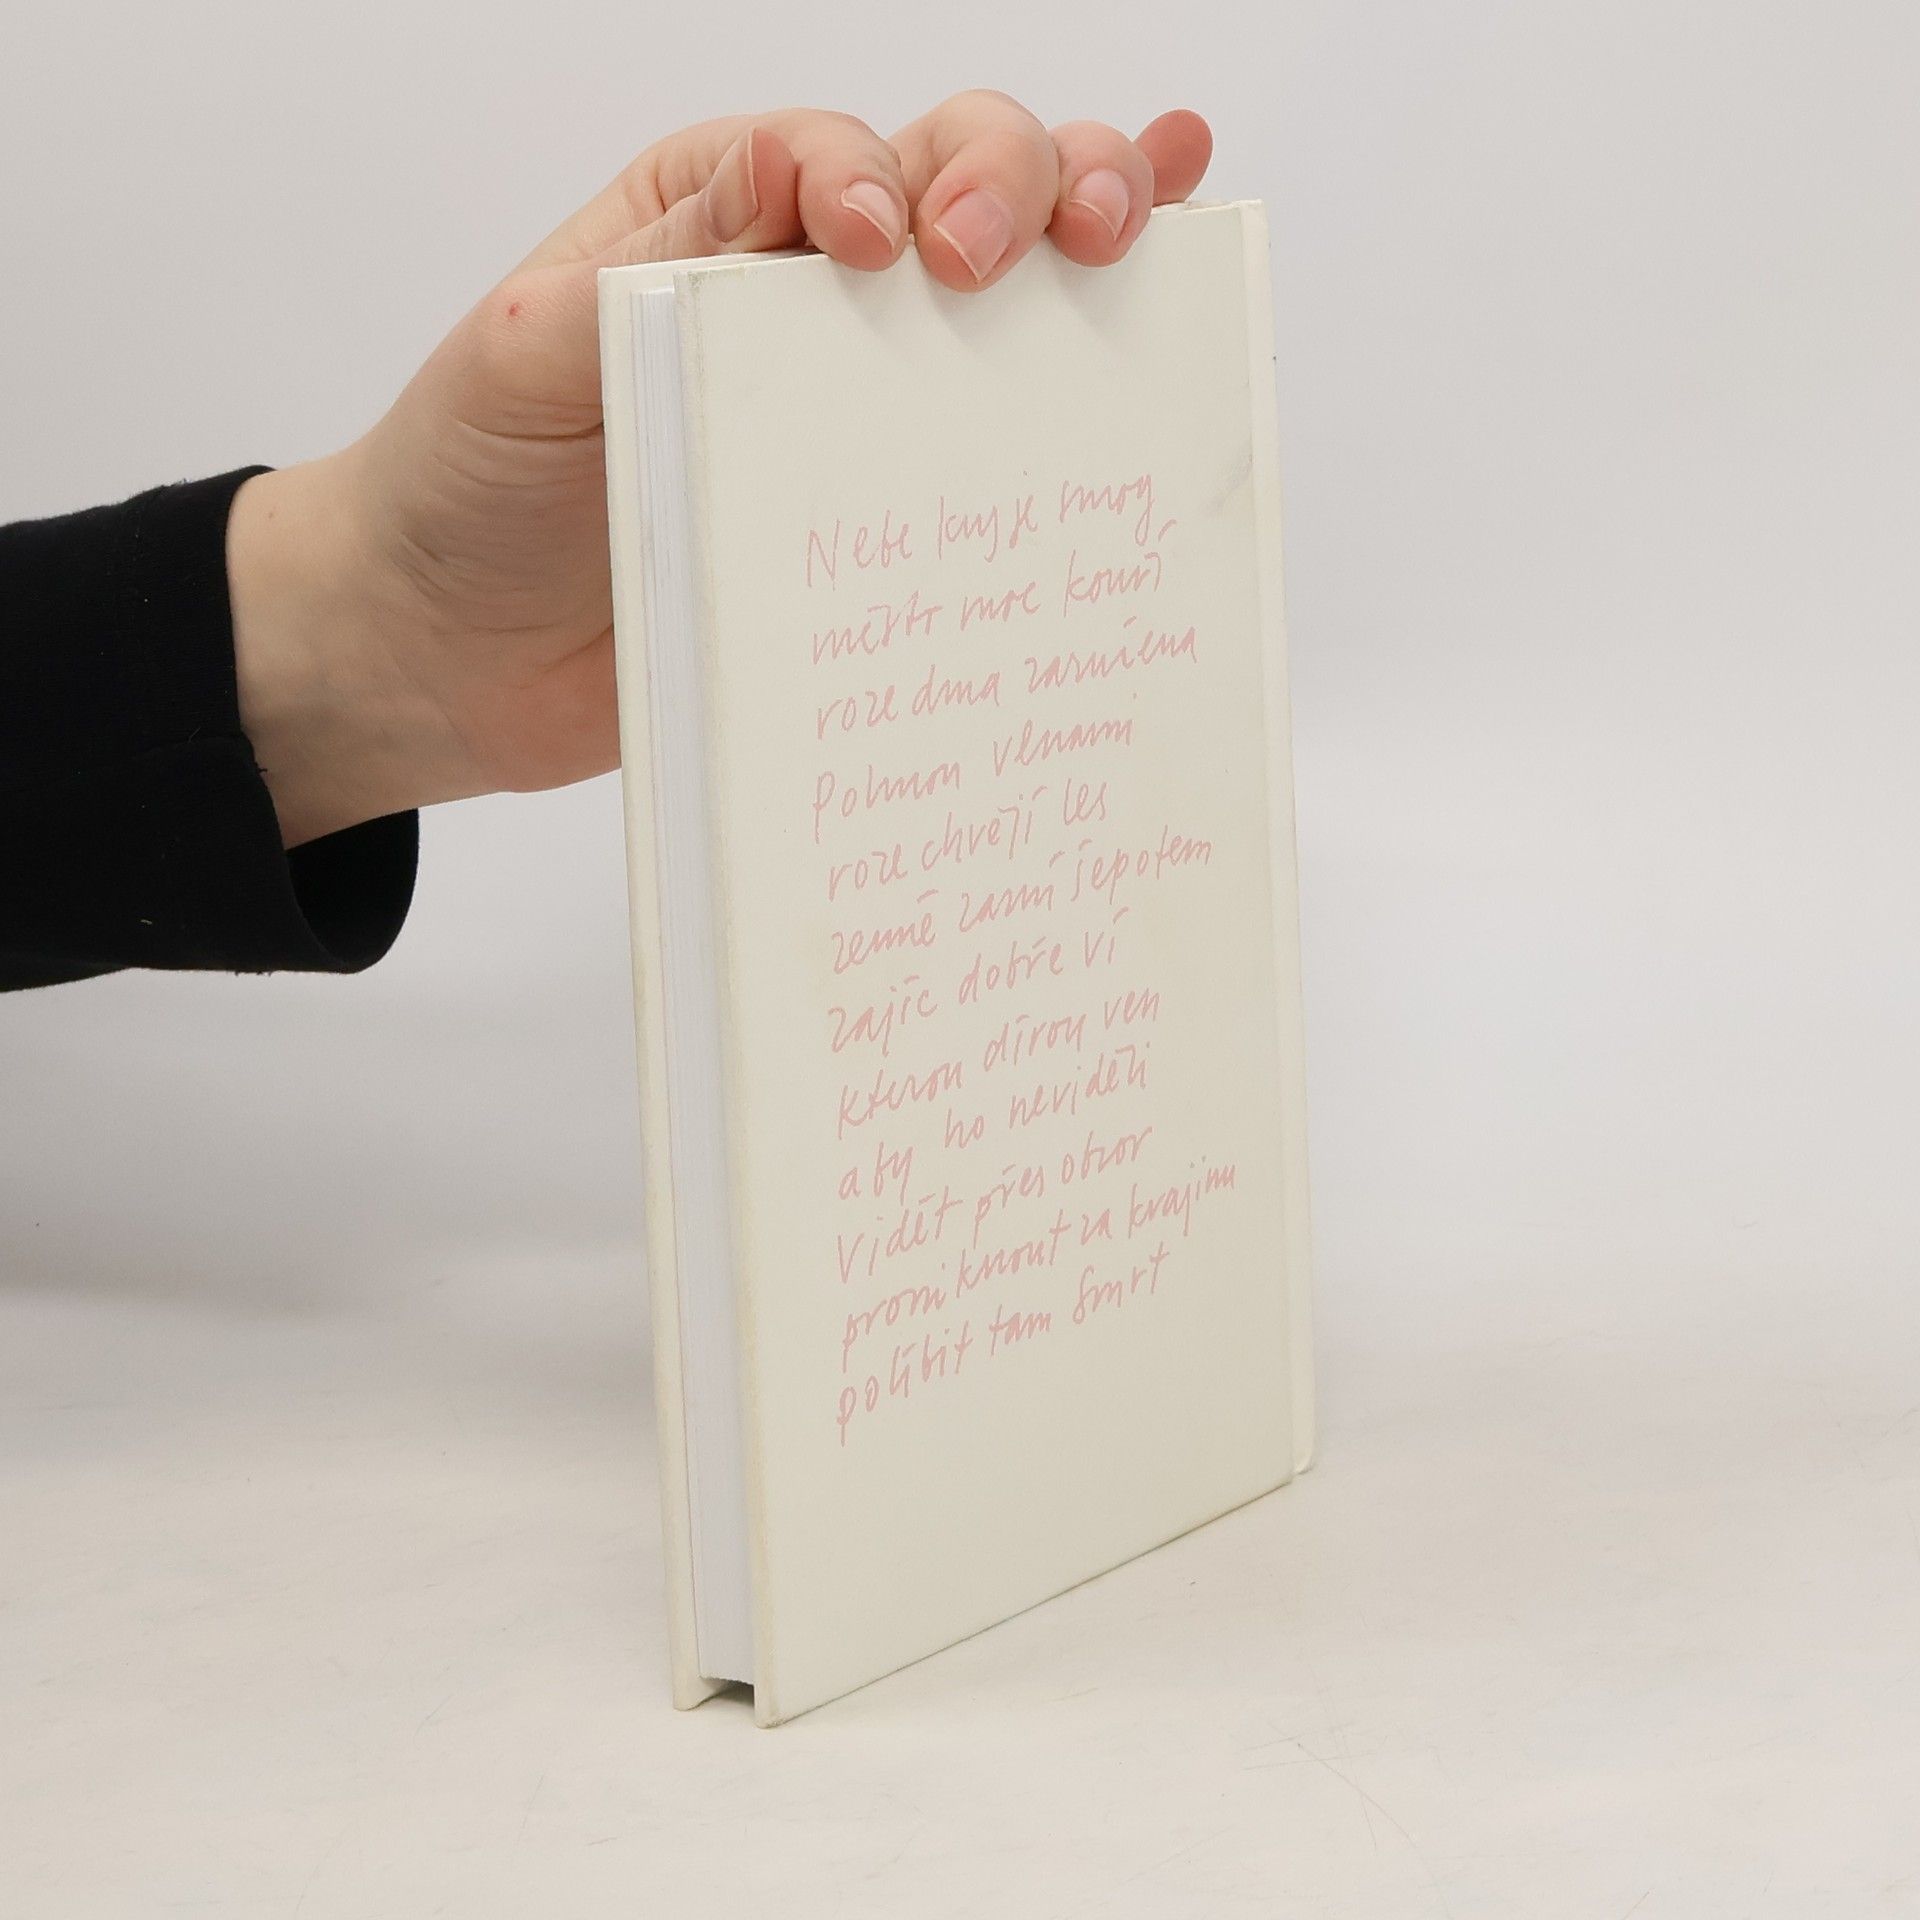 Nebe kryje smog
město moře kouří
roze dma zarmucena
Polmou vlnami
roze chvějí les
země zasní šepotem
zajíc dobře ví
kterou dírou ven
aby ho neviděli
Vidět přes obzor
proniknout za krajinu
políbit tam Smrt